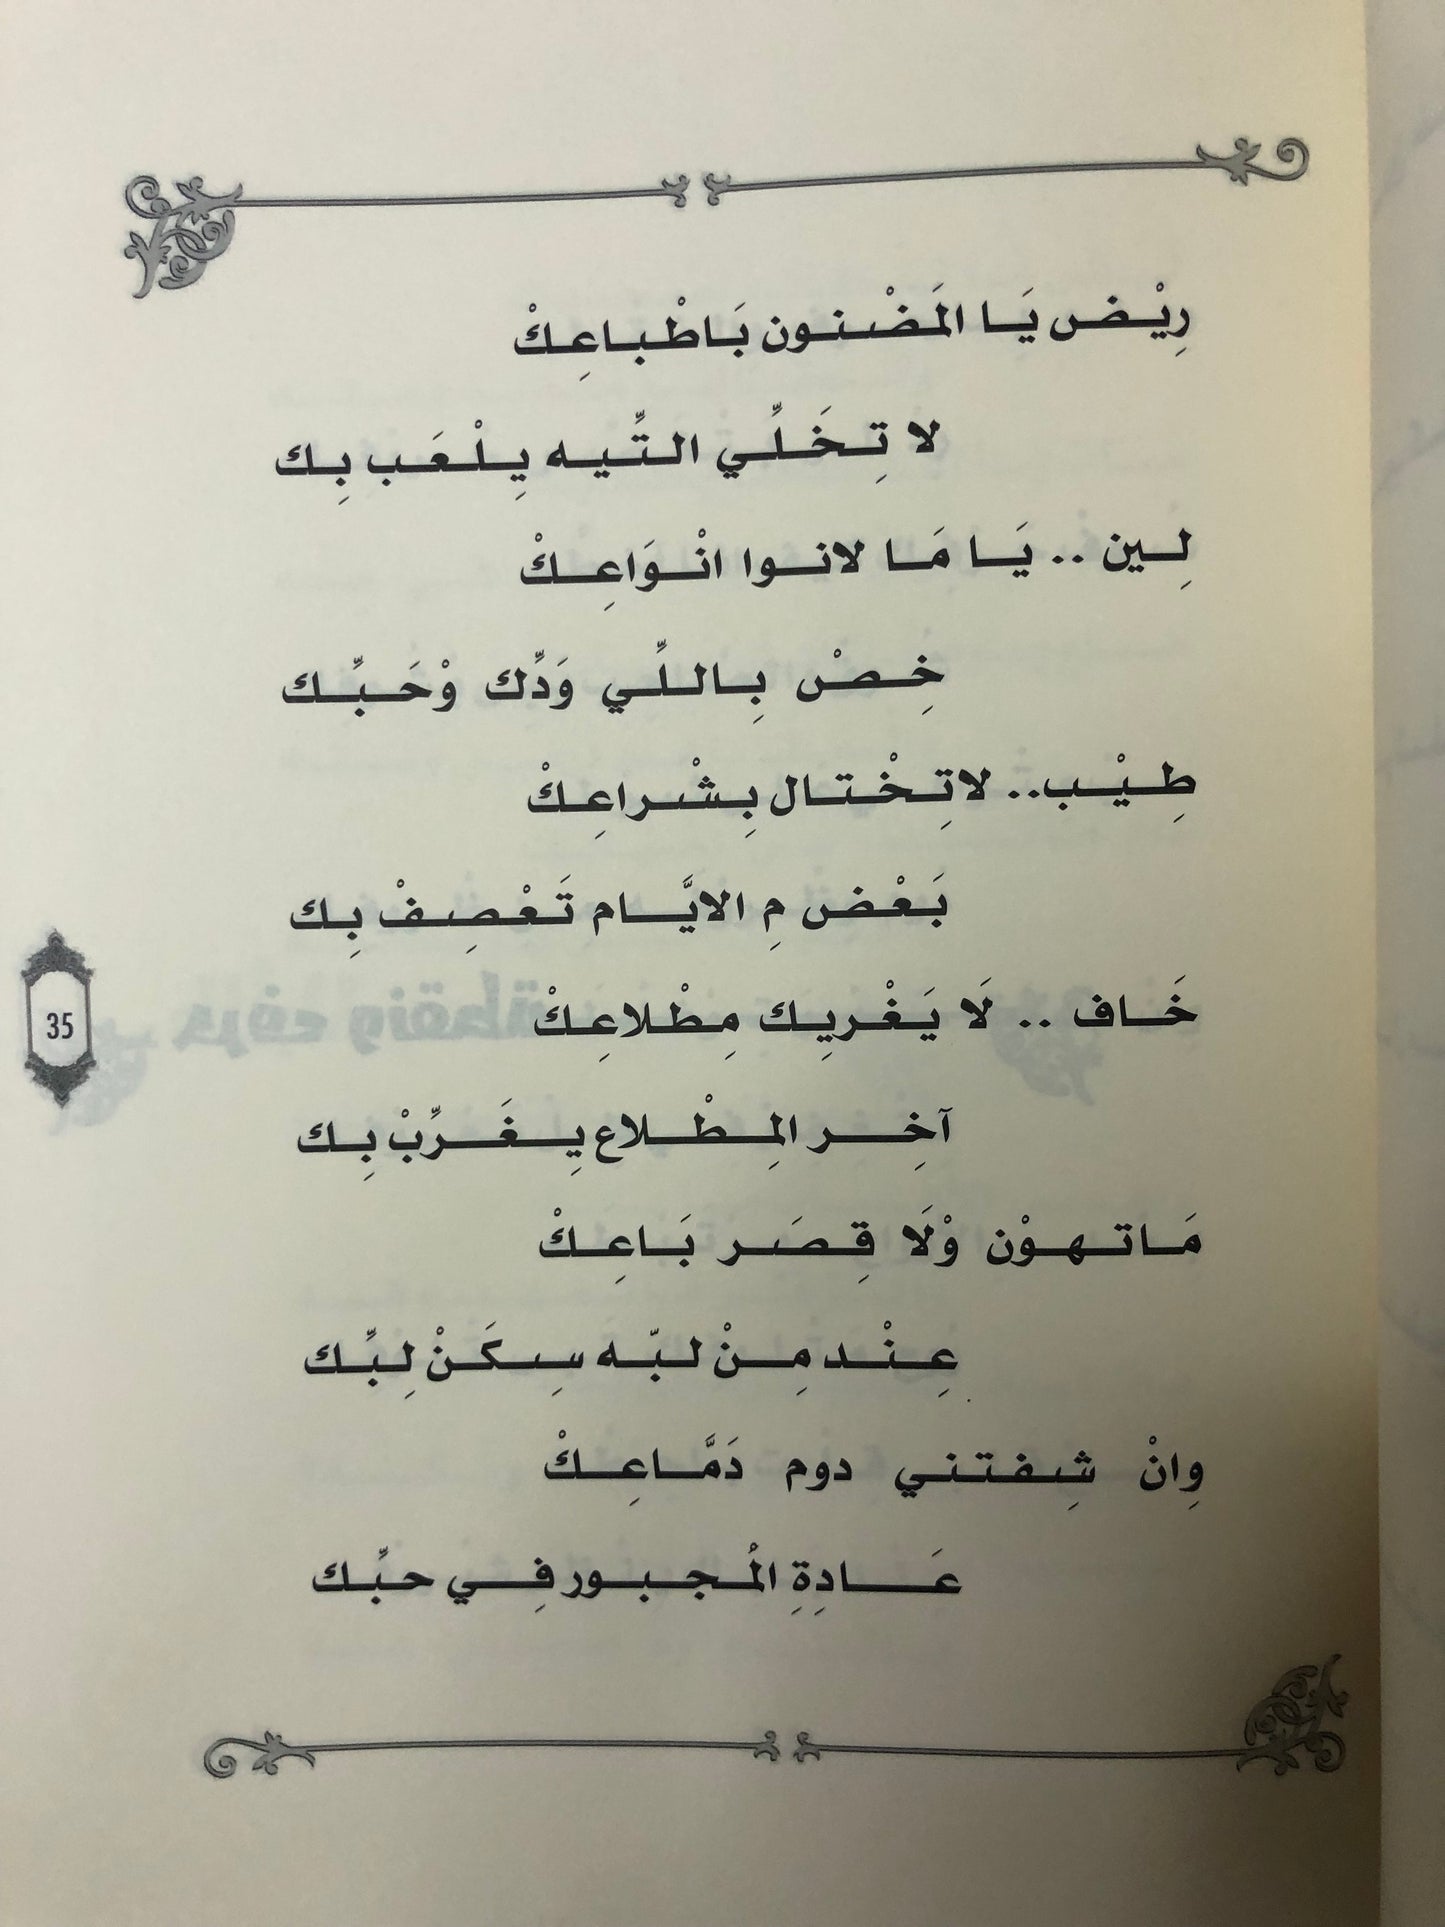 رِيْض يَا المَضْنون بَاطْباعِكْ
لا تِخَلِّي التِّيه يِلْعَب بِك
لِين .. يَا مَا لانوا انْوَاعِكْ
خِصْ بِاللِّي وَدِّك وْحَبِّك
طِيْب.. لاتِخْتال بِشْراعِكْ
بَعْض مِ الايَّام تَعْصِفْ بِك
خَاف .. لَا يَغْرِيك مِطْلاعِكْ
آخِر المِطْلاع يِغَرِّبْ بِك
35
مَاتهوْن وْلَا قِصَر بَاعِكْ
عِنْد مِنْ لبّه سِكَنْ لِبِّك
وِانْ شِفتني دوم دَمَّاعِكْ
عَادِةِ المُجبور فِي حبِّك